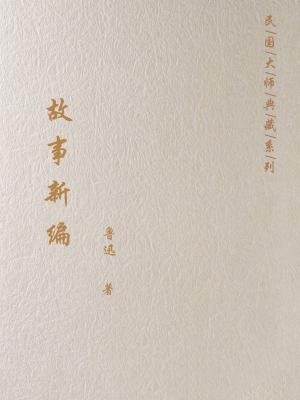 民|国|大|师|典|藏|系|列
故事新编
鲁迅 著